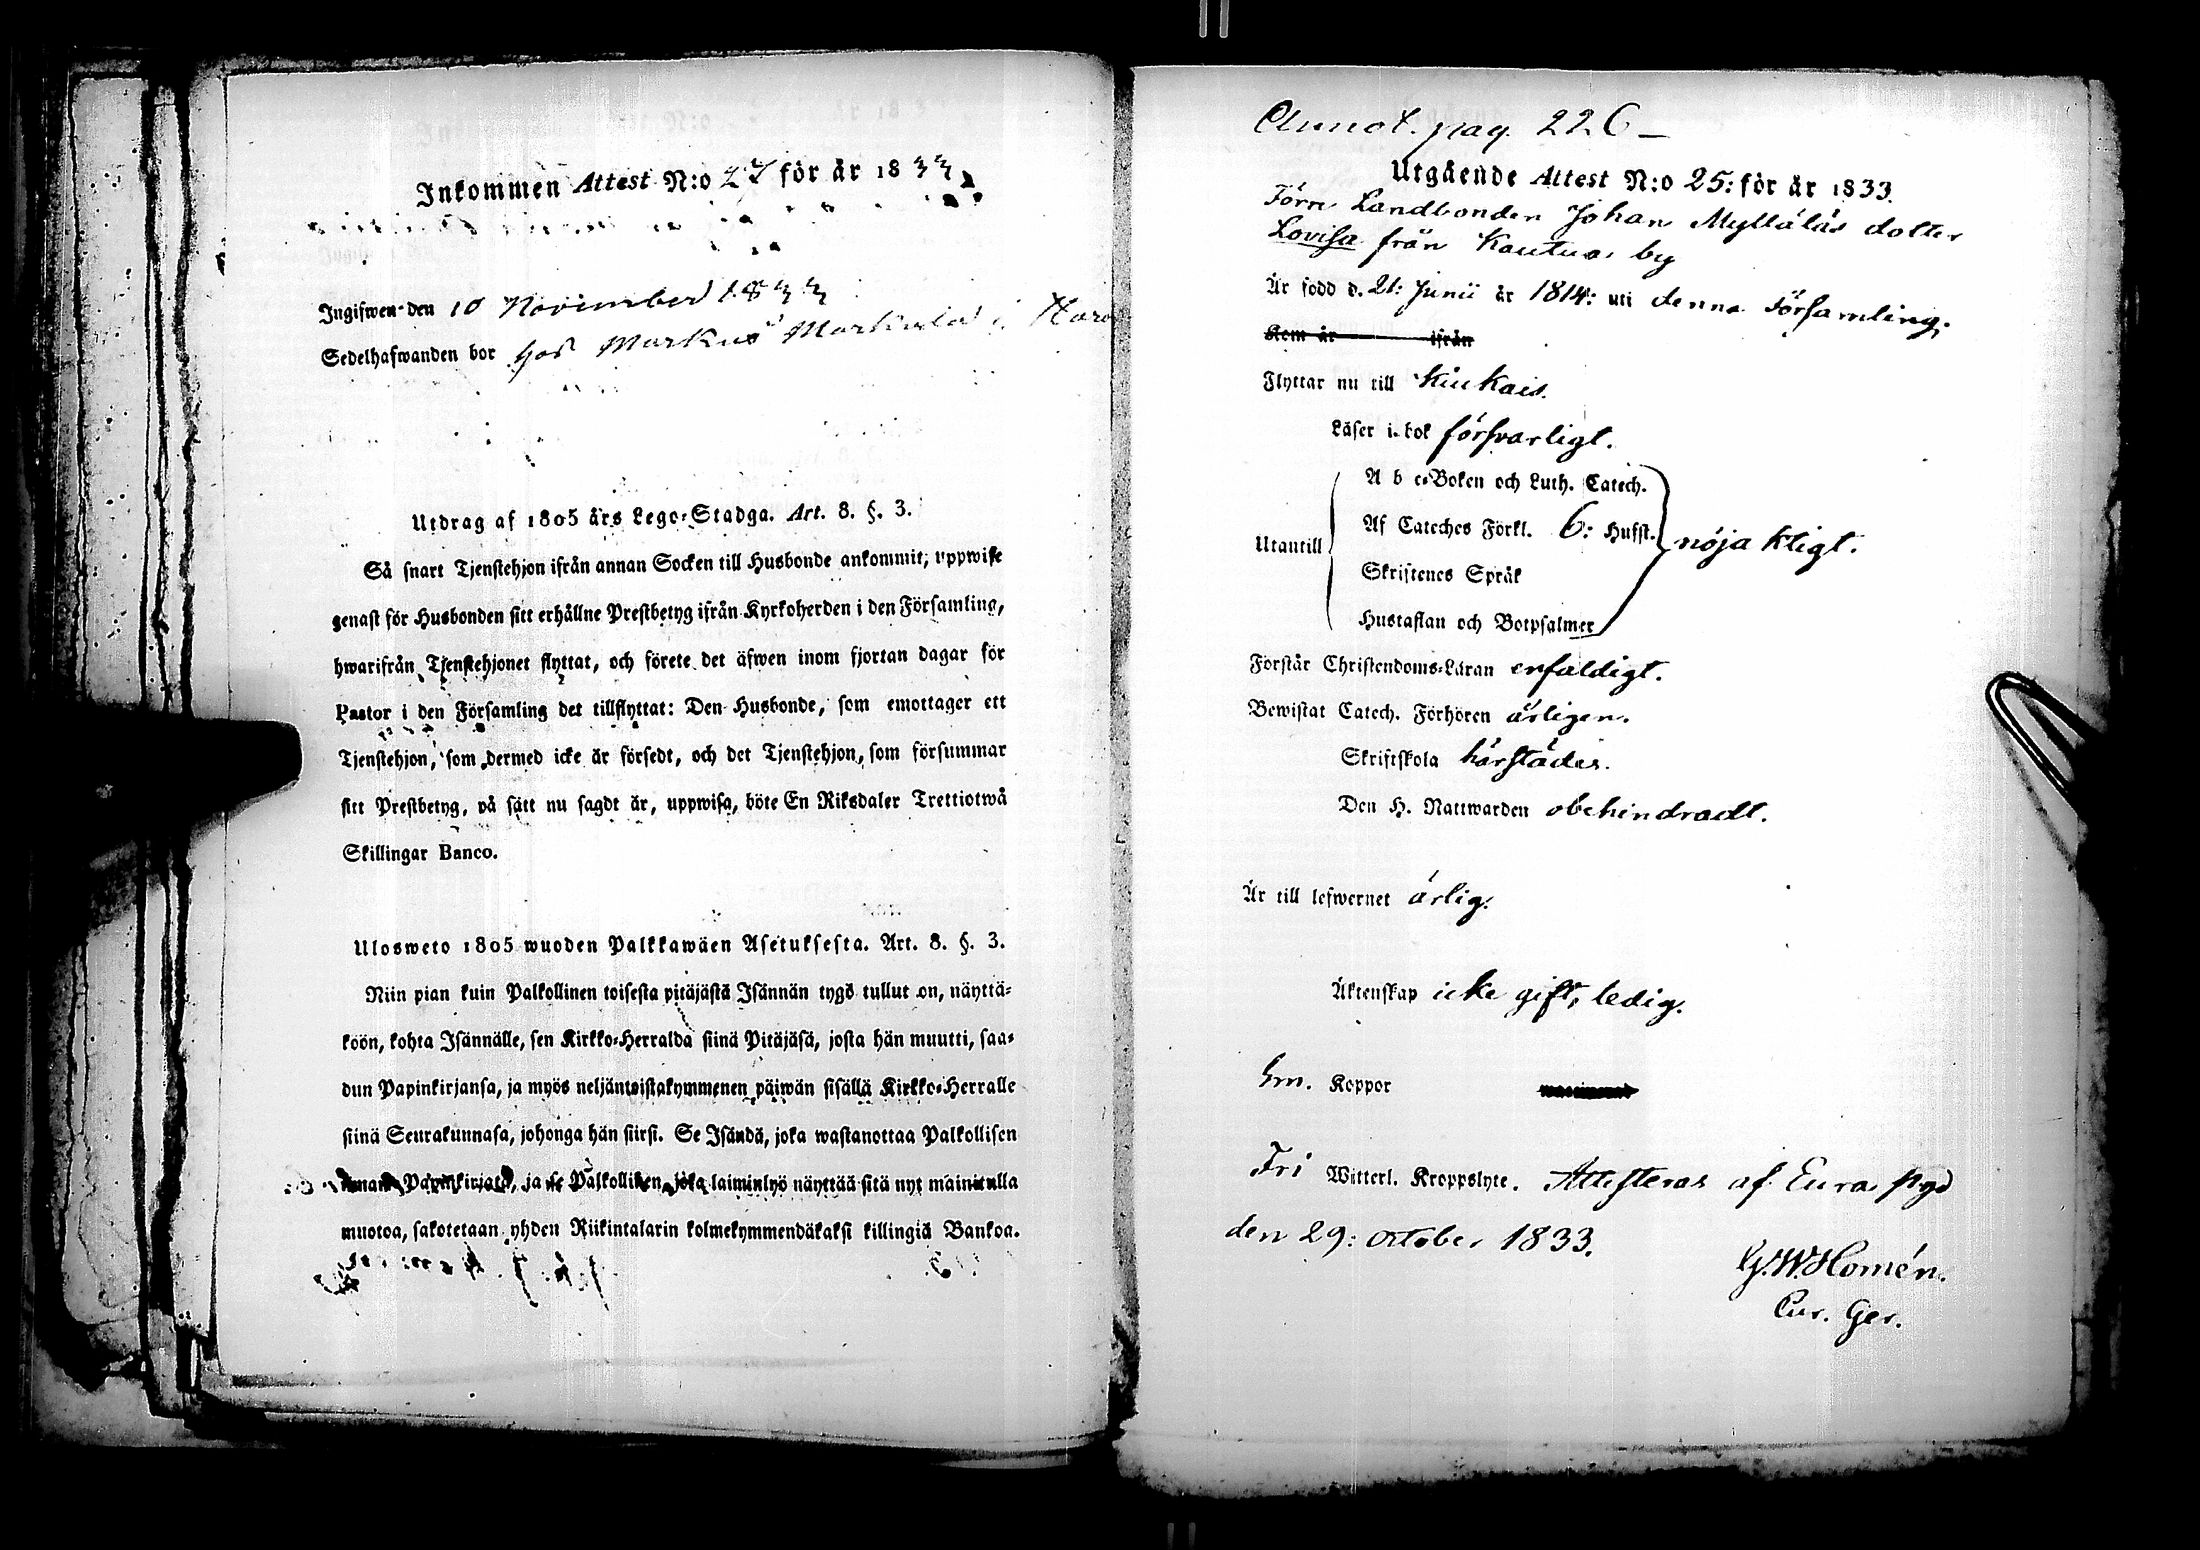 Inkommen Attest N:o 27 för år 1833
Ingifwen den 10 November 1833
Sedelhafwanden bor hos Markus Markula i
Utdrag af 1805 års Lego-Stadga. Art. 8. §. 3.
Så snart Tjenstehjon ifrån annan Socken till Husbonde ankommit, uppwise
genast för Husbonden sitt erhållne Prestbetyg ifrån Kyrkoherden i den Församling,
hwarifrån Tjenstehjonet flyttat, och förete det äfwen inom fjortan dagar för
Pastor i den Församling det tillflyttat: Den Husbonde, som emottager ett
Tjenstehjon, som dermed icke är försedt, och det Tjenstehjon, som försummar
sitt Prestbetyg, på sätt nu sagdt är, uppwisa, böte En Riksdaler Trettiotwå
Skillingar Banco.
Ulosweto 1805 wuoden Palkkawäen Asetuksesta. Art. 8. §. 3.
Niin pian kuin Palkollinen toisesta pitäjästä Isännän tygö tullut on, näyttä-
köön, kohta Isännälle, sen Kirkko-Herralda siinä Pitäjäsä, josta hän muutti, saa-
dun Papinkirjansa, ja myös neljäntoistakymmenen päiwän sisällä Kirkko-Herralle
siinä Seurakunnasa, johonga hän siirsi. Se Isändä, joka wastanottaa Palkollisen
ilman Papinkirjata, ja se Palkollinen, joka laiminlyö näyttää sitä nyt mainitulla
muotoa, sakotetaan yhden Riikintalarin kolmekymmendäkaksi killingiä Bankoa.
Annot. pag. 226
Utgående Attest N:o 25: för år 1833.
Förre Landbonden Johan Mylläläs dotter
Lovisa från Kautua by
Är född d. 21: Junii år 1814: uti denna Församling.
Kom år ifrån
Flyttar nu till Kiukais.
Läser i bok försvarligt.
A b c-Boken och Luth. Catech.
Utantill Af Cateches Förkl. 6: Hufst. nöjaktigt.
Skriftenes Språk
Hustaflan och Botpsalmer
Förstår Christendoms-Läran enfaldigt.
Bewistat Catech. Förhören årligen.
Skriftskola härstädes.
Den H. Nattwarden obehindradt.
Är till lefwernet ärlig.
Äktenskap icke gift, ledig.
Hm. Koppor
Fri Witterl. Kroppslyte. Attesteras af Eura pgd
den 29: October 1833.
G. W. Homén.
Cur. Ger.